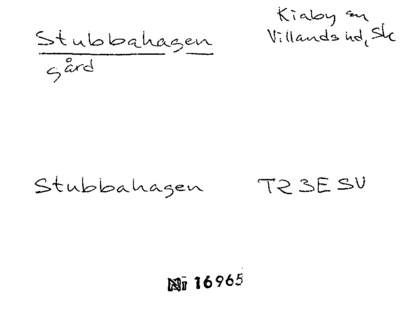 Stubbahagen
gård
Kiaby sn
Villands hd, Sk
Stubbahagen TR 3E SV
16965